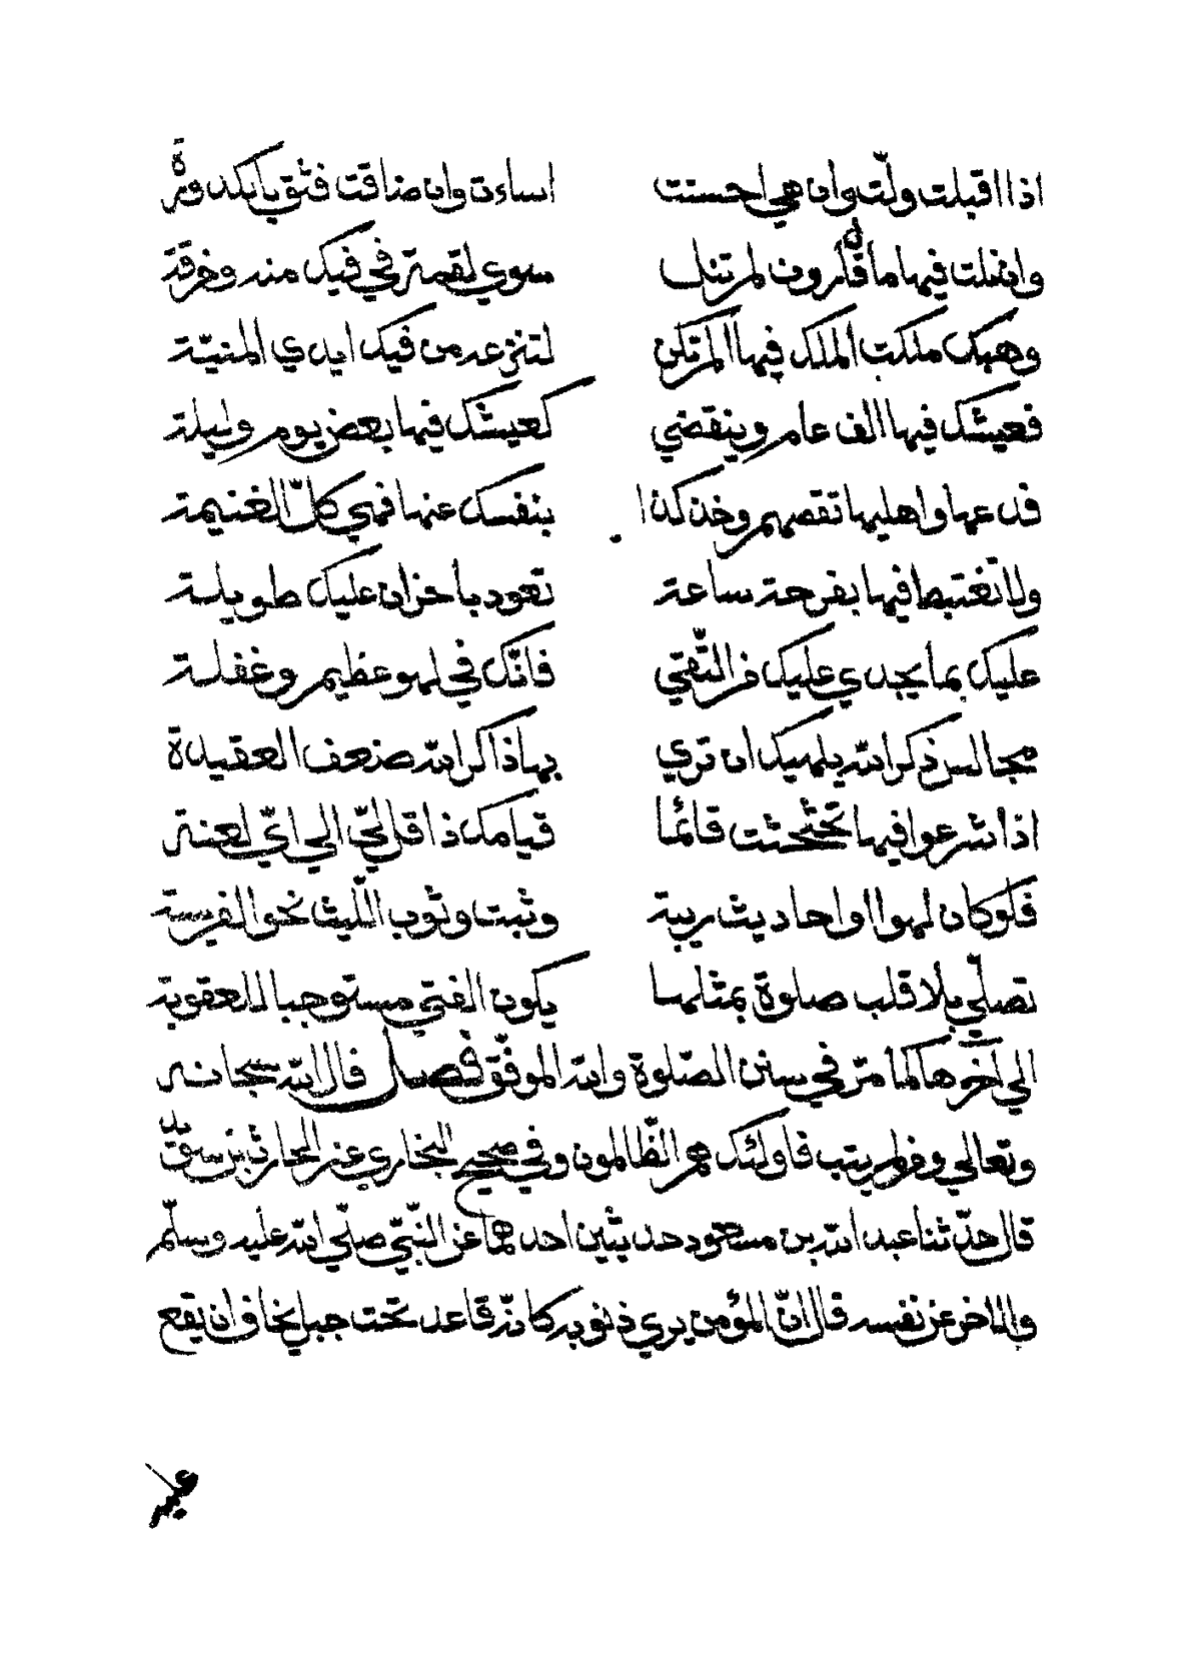 اذا اقبلت ولّت وان هي احسنت اساءت وان ضاقت فثق بالكدورة
وان نلت فيها مال قارون لم تنل سوي لقمة في فيك منه وخرقة
وهبك ملكت الملك فيها الم تكن لتنزعه من فيك ايدي المنيّة
فعيشك فيها الف عام وينقضي كعيشك فيها بعض يوم وليلة
فدعها واهليها تقصهم وخذ كذا بنفسك عنها فهي كلّ الغنيمة
ولا تغتبط فيها بفرحة ساعة تعود باحزان عليك طويلة
عليك بما يجدي عليك من التّقي فانّك في لهو عظيم وغفلة
مجالس ذكر الله يلهيك ان تري بها ذاكرا لله ضعف العقيدة
اذا شرعوا فيها تحثحثت قائما قيامك ذا قل لي الي ايّ لعنة
فلو كان لهوا او احاديث ريبة وثبت وثوب اللّيث نحو الفريسة
تصلّي بلا قلب صلوة بمثلها يكون الفتي مستوجبا للعقوبة
الي آخرها كما مرّ في سنن الصّلوة والله الموفّق فصل قال الله سبحانه
وتعالي ومن لم يتب فاولئك هم الظّالمون وفي صحيح البخاري عن الحارث بن سويد
قال حدّثنا عبد الله بن مسعود حديثين احدهما عن النّبيّ صلّي الله عليه وسلّم
والاخر عن نفسه قال انّ المؤمن يري ذنوبه كانّه قاعد تحت جبل يخاف ان يقع
عليه